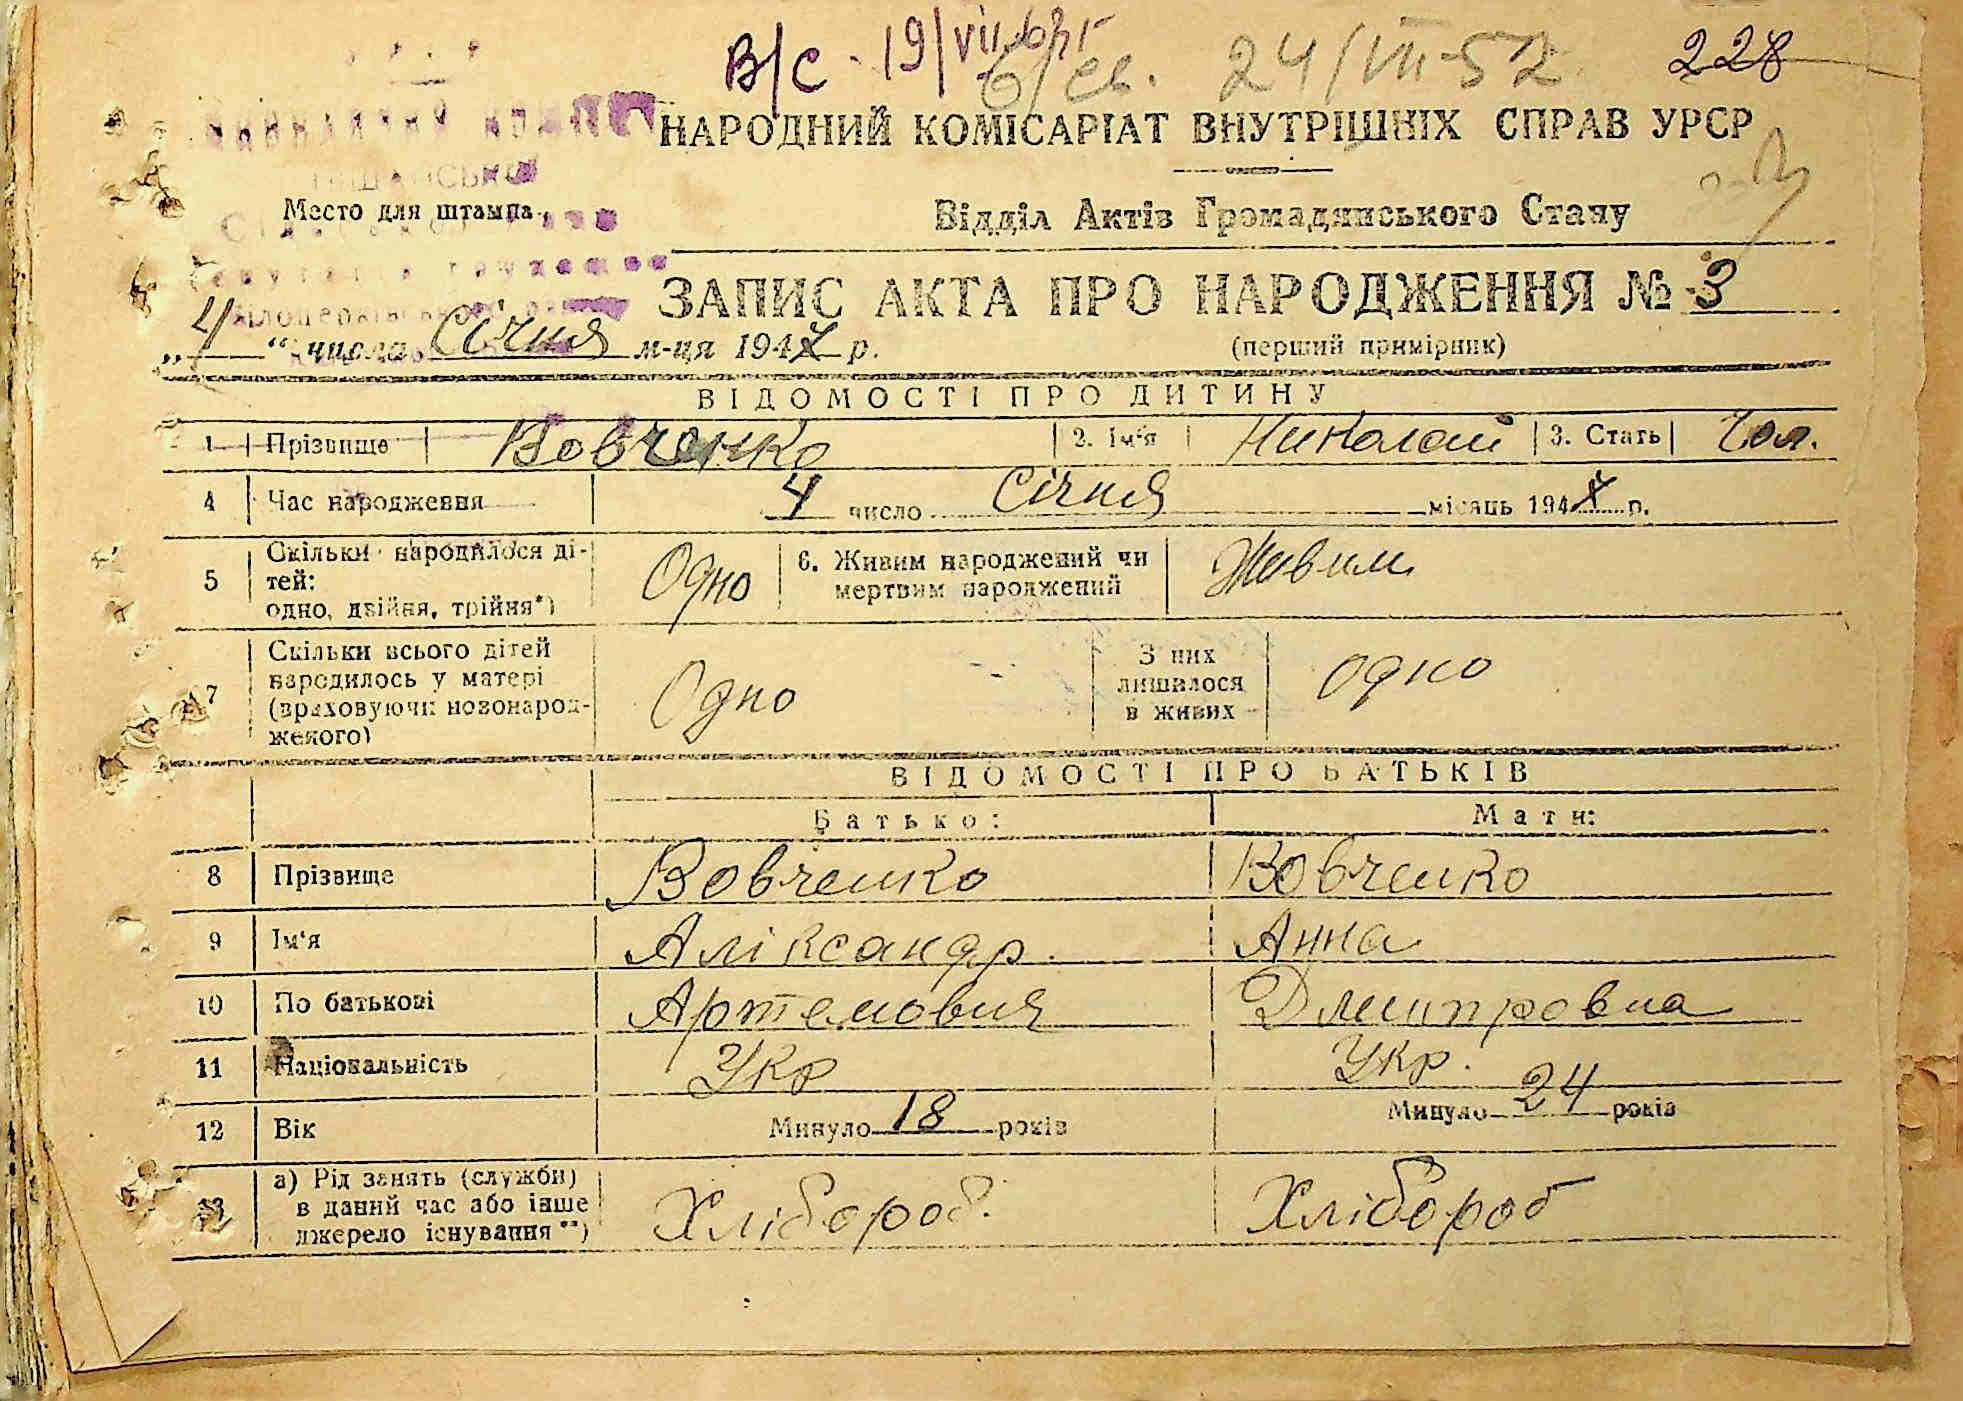 В/С - 19/VII
б/св. 24/VII-52
228
НАРОДНИЙ КОМІСАРІАТ ВНУТРІШНІХ СПРАВ УРСР
Место для штампа
Відділ Актів Громадянського Стану
ЗАПИС АКТА ПРО НАРОДЖЕННЯ № 3
„4“ числа Січня м-ця 1947 р.
(перший примірник)
ВІДОМОСТІ ПРО ДИТИНУ
1 Прізвище Вовченко 2. Ім'я Николай 3. Стать Чол.
4 Час народження 4 число Січня місяць 1947 р.
5 Скільки народилося ді-
тей:
одно, двійня, трійня*) Одно 6. Живим народжений чи
мертвим народжений Живим
7 Скільки всього дітей
народилось у матері
(враховуючи новонарод-
женого) Одно З них
лишилося
в живих Одно
ВІДОМОСТІ ПРО БАТЬКІВ
Батько: Мати:
8 Прізвище Вовченко Вовченко
9 Ім'я Аліксандр. Анна
10 По батькові Артемович Дмитровна
11 Національність Укр Укр.
12 Вік Минуло 18 років Минуло 24 років
13 а) Рід занять (служби)
в даний час або інше
джерело існування **) Хлібороб. Хлібороб